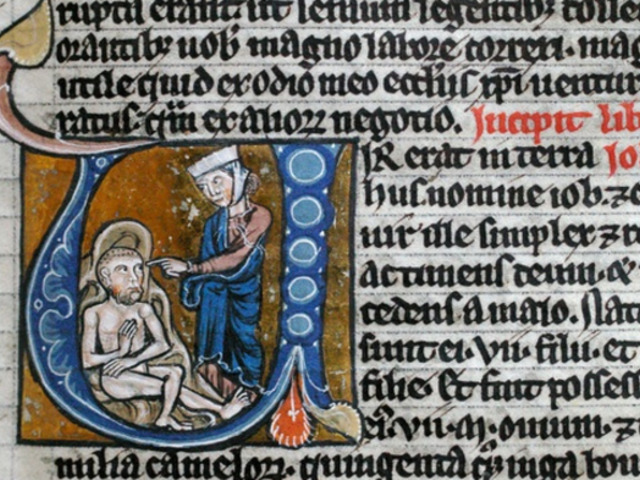 rupta erant ut sensum legentibꝫ tolle
orantibꝫ uob magno labore correxi. mag
utile quid ex odio meo eccliis xpi uentur
ratus. qm ex alioꝝ negotio. Incipit lib
UIR erat in terra Io
hus nomine iob. ⁊ e
uir ille simplex ⁊ r
ac timens deum. &
cedens a malo. Nati
sunt ei. vii. filii. et
filie. Et fuit possess
ei. vii. m. ouium. ⁊
milia cameloꝝ. quingenta qꝫ iuga bou